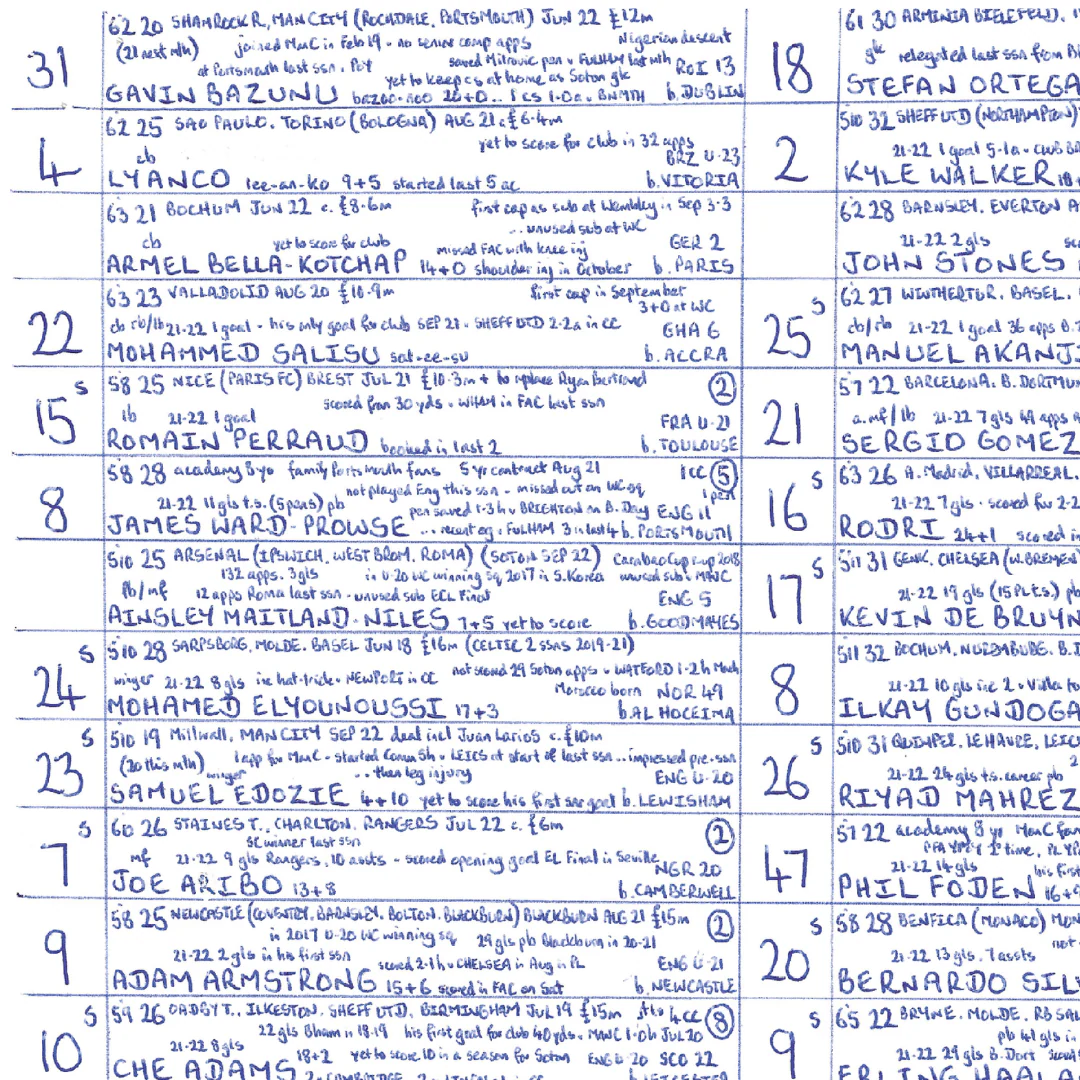 31
62 20 SHAMROCK R, MAN CITY (ROCHDALE, PORTSMOUTH) JUN 22 £12m
(21 next mth) joined ManC in Feb 19 - no senior comp apps Nigerian descent
at Portsmouth last ssn. PoY saved Mitrovic pen v FULHAM last mth RoI 13
yet to keep cs at home as Soton gk
GAVIN BAZUNU bazoo-noo 20+0.. 1 cs 1-0a v BNMTH b. DUBLIN
4
62 25 SAO PAULO, TORINO (BOLOGNA) AUG 21 c. £6.4m
yet to score for club in 32 apps
cb BRZ U-23
LYANCO lee-an-ko 9+5 started last 5 ac b. VITORIA
63 21 BOCHUM JUN 22 c. £8.6m first cap as sub at Wembley in Sep 3-3
...unused sub at WC
cb yet to score for club missed FAC with knee inj GER 2
ARMEL BELLA-KOTCHAP 14+0 shoulder inj in October b. PARIS
22
63 23 VALLADOLID AUG 20 £10.9m first cap in September
3+0 at WC
cb rb/lb 21-22 1 goal - his only goal for club SEP 21 - SHEFF UTD 2-2a in CC GHA 6
MOHAMMED SALISU sal-ee-su b. ACCRA
15 S
58 25 NICE (PARIS FC) BREST JUL 21 £10.3m + to replace Ryan Bertrand 2
scored from 30 yds v WHAM in FAC last ssn
lb 21-22 1 goal FRA U-21
ROMAIN PERRAUD booked in last 2 b. TOULOUSE
8
58 28 academy 8yo family Portsmouth fans 5 yr contract Aug 21 1cc 5
not played Eng this ssn - missed out on WC sq 1 pen
21-22 11 gls t.s. (5 pens) pb pen saved 1-3 h v BRIGHTON on B. Day ENG 11
JAMES WARD-PROWSE ... recent eg v FULHAM 3 in last 4 b. PORTSMOUTH
510 25 ARSENAL (IPSWICH, WEST BROM, ROMA) (SOTON SEP 22) Carabao Cup rup 2018
132 apps. 3 gls in U-20 WC winning sq 2017 in S. Korea unused sub v MNC
rb/mf 12 apps Roma last ssn - unused sub ECL Final ENG 5
AINSLEY MAITLAND-NILES 7+5 yet to score b. GOODMAYES
24 S
510 28 SARPSBORG, MOLDE, BASEL JUN 18 £16m (CELTIC 2 SSNS 2019-21)
not scored 29 Soton apps v WATFORD 1-2 h Mach
winger 21-22 8 gls inc hat-trick v NEWPORT in CC Morocco born NOR 49
MOHAMED ELYOUNOUSSI 17+3 b. AL HOCEIMA
23 S
510 19 Millwall, MAN CITY SEP 22 deal incl Juan Larios c. £10m
(20 this mth) 1 app for ManC - started Comm Sh v LEICS at start of last ssn... impressed pre-ssn
winger ...then leg injury ENG U-20
SAMUEL EDOZIE 4+10 yet to score his first snr goal b. LEWISHAM
7 S
60 26 STAINES T., CHARLTON, RANGERS JUL 22 c. £6m 2
SC winner last ssn
mf 21-22 9 gls Rangers, 10 assts - scored opening goal EL Final in Seville
NGR 20
JOE ARIBO 13+8 b. CAMBERWELL
9
58 25 NEWCASTLE (COVENTRY, BARNSLEY, BOLTON, BLACKBURN) BLACKBURN AUG 21 £15m 2
in 2017 U-20 WC winning sq 29 gls pb Blackburn in 20-21
21-22 2 gls in his first ssn scored 2-1 h v CHELSEA in Aug in PL ENG U-21
ADAM ARMSTRONG 15+6 scored in FAC on Sat b. NEWCASTLE
10 S
59 26 OADBY T., ILKESTON, SHEFF UTD, BIRMINGHAM JUL 19 £15m 4cc 8
22 gls Bham in 18-19 his first goal for club 40 yds v MANC 1-0h JUL 20
21-22 8 gls 18+2 yet to score 10 in a season for Soton ENG U-20 SCO 22
CHE ADAMS
18
61 30 ARMINIA BIELEFELD,
gk relegated last ssn from
STEFAN ORTEGA
2
510 32 SHEFF UTD (NORTHAMPTON)
21-22 1 goal 5-1a v CLUB
KYLE WALKER
62 28 BARNSLEY, EVERTON
21-22 2 gls
JOHN STONES
25 S
62 27 WINTHERTUR, BASEL,
cb/rb 21-22 1 goal 36 apps
MANUEL AKANJI
21
57 22 BARCELONA, B. DORTMUND
a.mf/lb 21-22 7 gls 49 apps
SERGIO GOMEZ
16 S
63 26 A. Madrid, VILLARREAL,
21-22 7 gls - scored for 2-2
RODRI 24+1 scored in
17 S
511 31 GENK, CHELSEA (W. BREMEN
21-22 19 gls (15 PL t.s.) pb
KEVIN DE BRUYN
8
511 32 BOCHUM, NURNBURG, B.
21-22 10 gls inc 2 v Villa to
ILKAY GUNDOGA
26 S
510 31 QUIMPER, LE HAVRE, LEIC
21-22 24 gls t.s. career pb
RIYAD MAHREZ
47
57 22 academy 8 yo ManC fan
PFA YPOY 2 time, PL YP
21-22 14 gls his first
PHIL FODEN 16+
20 S
58 28 BENFICA (MONACO)
21-22 13 gls. 7 assts
BERNARDO SIL
9 S
65 22 BRYNE, MOLDE, RB SA
pb 41 gls
21-22 29 gls B. Dort
ERLING HAALA